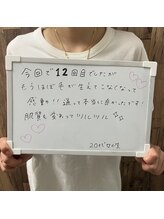 今回で12回目でしたが
もうほぼ毛が生えてこなくなって
感動!!通って本当に良かったです!
肌質も変わってツルツル
20代女性